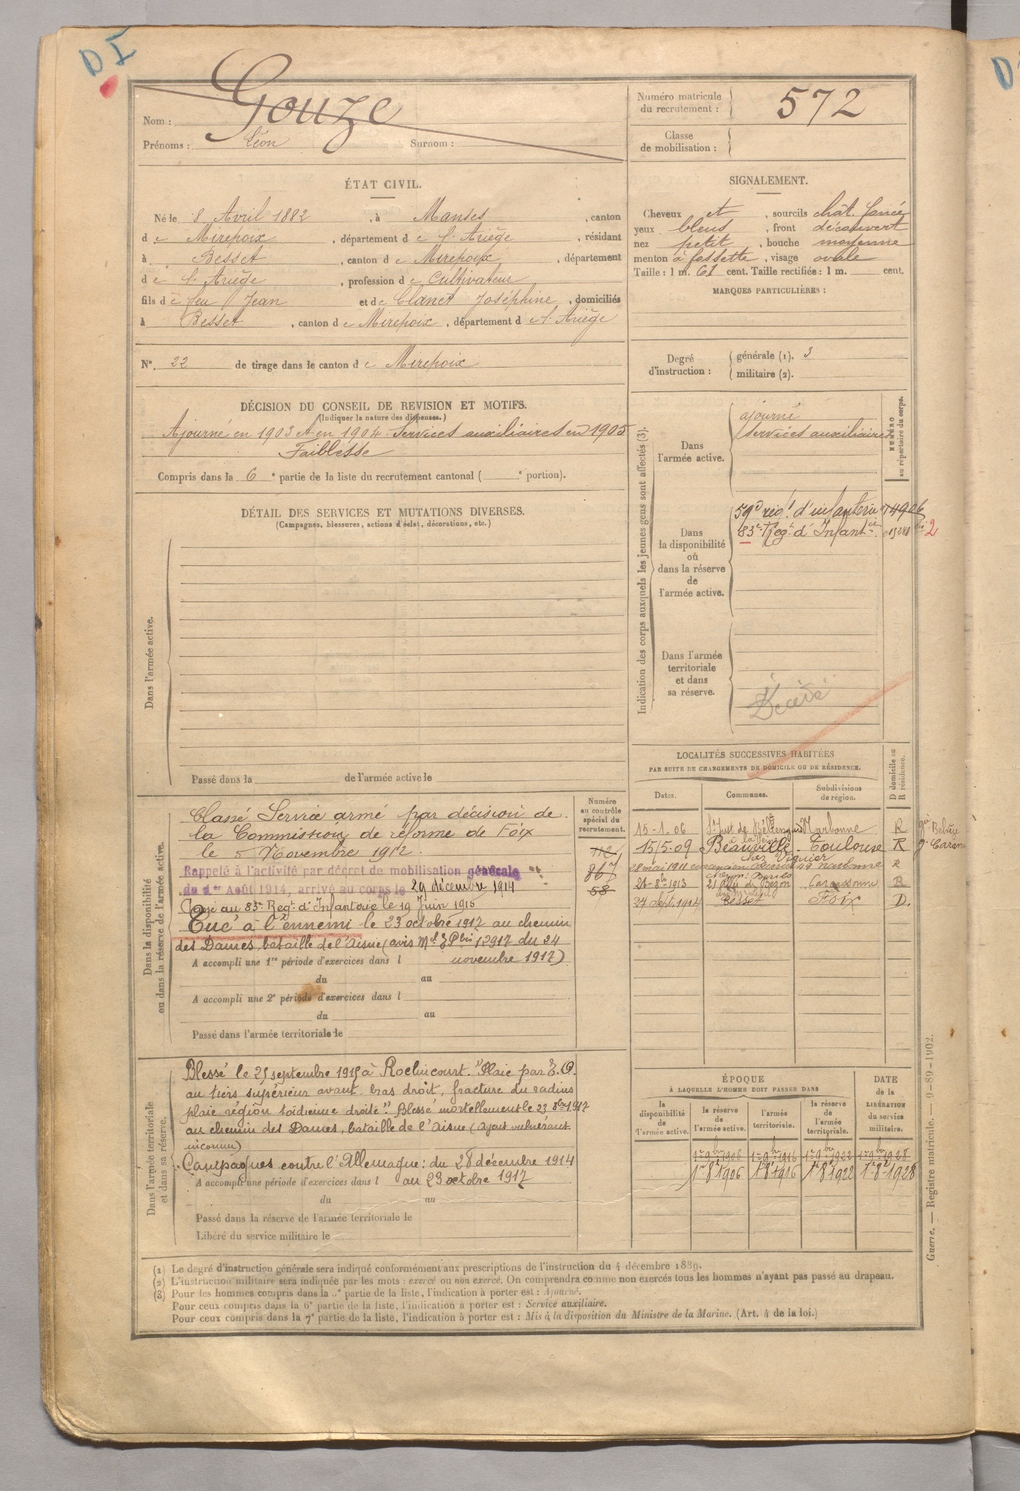 D I
Nom : Gouze
Prénoms : Léon Surnom :
Numéro matricule du recrutement : 572
Classe de mobilisation :
ÉTAT CIVIL.
Né le 8 Avril 1882, à Manses, canton
de Mirepoix, département de l'Ariège, résidant
à Besset, canton de Mirepoix, département
de l'Ariège, profession de Cultivateur
fils de feu Jean et de Clanet Joséphine, domiciliés
à Besset, canton de Mirepoix, département de l'Ariège
N°. 22 de tirage dans le canton de Mirepoix
SIGNALEMENT.
Cheveux et, sourcils chât. foncé
yeux bleus, front découvert
nez petit, bouche moyenne
menton à fossette, visage ovale
Taille : 1 m. 61 cent. Taille rectifiée : 1 m. cent.
MARQUES PARTICULIÈRES :
Degré d'instruction : générale (1). 3
militaire (2).
DÉCISION DU CONSEIL DE REVISION ET MOTIFS.
(Indiquer la nature des dispenses.)
Ajourné en 1903 et en 1904 Services auxiliaires en 1905
Faiblesse
Compris dans la 6e partie de la liste du recrutement cantonal ( e portion).
DÉTAIL DES SERVICES ET MUTATIONS DIVERSES.
(Campagnes, blessures, actions d'éclat, décorations, etc.)
Dans l'armée active.
Passé dans la de l'armée active le
Indication des corps auxquels les jeunes gens sont affectés (3).
NUMÉRO au répertoire du corps.
Dans l'armée active.
ajourné
services auxiliaires
Dans la disponibilité ou dans la réserve de l'armée active.
59e régt d'infanterie
83e Régt d'Infantie
2
Dans l'armée territoriale et dans sa réserve.
Décédé
Dans la disponibilité ou dans la réserve de l'armée active.
Numéro au contrôle spécial du recrutement.
Classé Service armé par décision de
la Commission de réforme de Foix
le 5 Novembre 1912.
Rappelé à l'activité par décret de mobilisation générale
du 1er Août 1914, arrivé au corps le 29 décembre 1914
au 83e Regt d'Infanterie le 19 Juin 1915
Tué à l'ennemi le 23 octobre 1917 au chemin
des Dames, bataille de l'Aisne (avis 12917 du 24
novembre 1917)
A accompli une 1re période d'exercices dans l
du au
A accompli une 2e période d'exercices dans l
du au
Passé dans l'armée territoriale le
LOCALITÉS SUCCESSIVES HABITÉES
PAR SUITE DE CHANGEMENTS DE DOMICILE OU DE RÉSIDENCE.
Dates. Communes. Subdivisions de région. D domicile ou R résidence.
15-1.06 St Just de Narbonne R
15/5-09 Beauville Toulouse R
28 mai 1911 narbonne R
26-8-1913 Carcassonne R
27 1914 Besset Foix D.
Dans l'armée territoriale et dans sa réserve.
Blessé le 25 septembre 1915 à Roclincourt. "Plaie par E.O.
au tiers supérieur avant bras droit, fracture du radius
plaie région droite". Blessé mortellement le 23 8bre 1917
au chemin des Dames, bataille de l'Aisne (Agent vulnérant
inconnu)
Campagnes contre l'Allemagne : du 28 décembre 1914
au 23 octobre 1917
A accompli une période d'exercices dans l
du au
Passé dans la réserve de l'armée territoriale le
Libéré du service militaire le
ÉPOQUE
À LAQUELLE L'HOMME DOIT PASSER DANS
DATE de la LIBÉRATION du service militaire.
la disponibilité de l'armée active. la réserve de l'armée active. l'armée territoriale. la réserve de l'armée territoriale.
1er 8 1906 1er 8 1916 1er 8 1922 1er 8 1928
(1) Le degré d'instruction générale sera indiqué conformément aux prescriptions de l'instruction du 4 décembre 1889.
(2) L'instruction militaire sera indiquée par les mots : exercé ou non exercé. On comprendra comme non exercés tous les hommes n'ayant pas passé au drapeau.
(3) Pour les hommes compris dans la 5e partie de la liste, l'indication à porter est : Ajourné.
Pour ceux compris dans la 6e partie de la liste, l'indication à porter est : Service auxiliaire.
Pour ceux compris dans la 7e partie de la liste, l'indication à porter est : Mis à la disposition du Ministre de la Marine. (Art. 4 de la loi.)
Guerre. — Registre matricule.